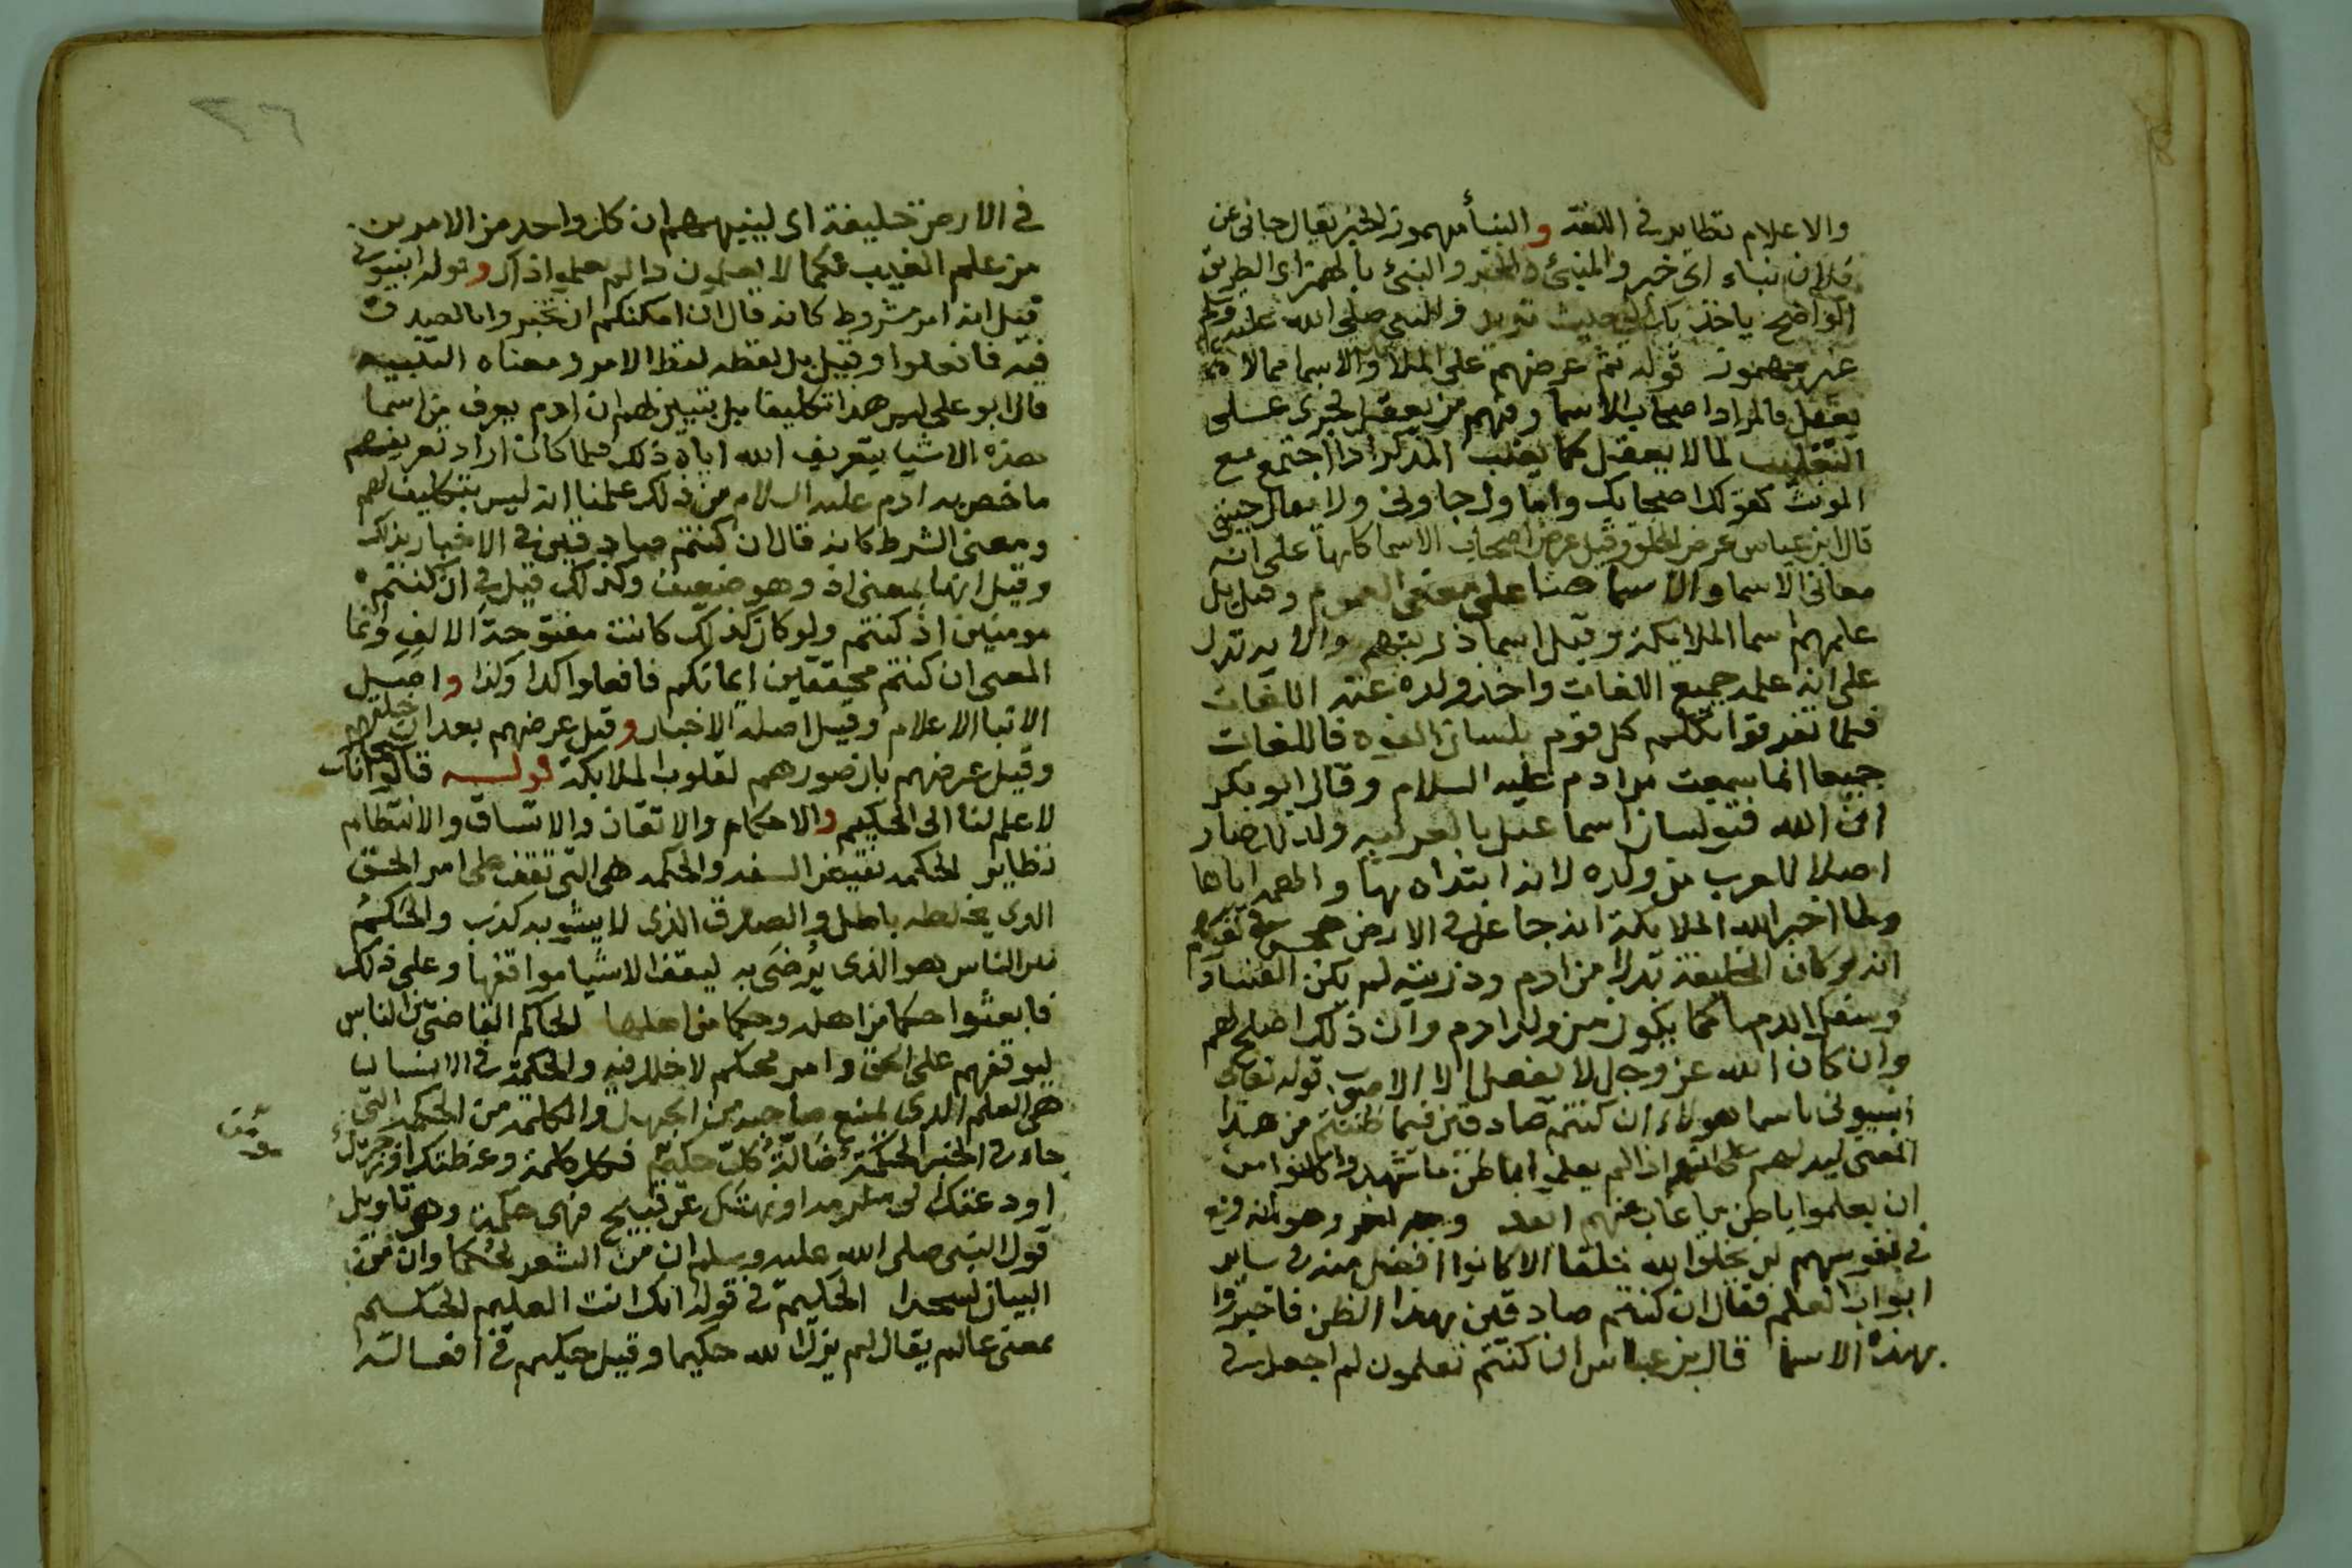 والاعلام نظاير في اللغة والنبأ مهموز الخبر يقال جاني عن
فلان نباء اي خبر والمنبئ المخبر والنبئ بالهمز اي الطريق
الواضح ياخذ بك الي حيث تريد والنبي صلى الله عليه وسلم
غير مهموز قوله ثم عرضهم على الملا والاسما مما لا
يعقل فالمراد اصحاب الاسما وفيهم من يعقل فجرى على
التغليب لما لا يعقل كما يغلب المذكر اذا اجتمع مع
المونث كقولك اصحابك واماوك جاوني ولا يقال جيني
قال ابن عباس عرض الخلق وقيل عرض اصحاب الاسما كلها على انه
معاني الاسما والاسما هنا على معنى العموم وقيل بل
علمهم اسما الملايكة وقيل اسما ذريتهم والايه تدل
على انه علمه جميع اللغات واخذ ولده عنه اللغات
فلما تفرقوا تكلم كل قوم بلسان الفوه فاللغات
جميعا انما سمعت من ادم عليه السلام وقال ابو بكر
ان الله فتق لسان اسماعيل بالعربيه ولذلك صار
اصلا للعرب من ولده لانه ابتداه بها والهمه اياها
ولما اخبر الله الملايكة انه جاعل في الارض هجس في نفوسهم
انه لو كان الخليفة بدلا من ادم وذريته لم يكن الفساد
وسفك الدما كما يكون من ولد ادم وان ذلك اصلح لهم
وان كان الله عز وجل لا يفعل الا الاصوب قوله تعالى
انبيوني باسما هولاء ان كنتم صادقين فيما ظننتم من هذا
المعنى ليدلهم على انهم اذا لم يعلموا باطن ما شهدوا كانوا من
ان يعلموا باطن ما غاب عنهم ابعد ووجه اخر وهو انه وقع
في نفوسهم لن يخلق الله خلقا الا كانوا افضل منه في ساير
ابواب العلم فقال ان كنتم صادقين بهذا الظن فاخبروا
بهذه الاسما قال بن عباس ان كنتم تعلمون لم اجعل في
٢٦
في الارض خليفة اي لينبيهم ان كل واحد من الامرين
من علم الغيب فكما لا يعلمون ذا لم يعلموا ذاك وقوله انبيوني
قيل انه امر مشروط كانه قال ان امكنكم ان تخبروا بالصدق
فيه فافعلوا وقيل بل لفظه لفظ الامر ومعناه التنبيه
قال ابو علي ليس هذا تكليفا بل تبيين لهم ان ادم يعرف من اسما
هذه الاشيا بتعريف الله اياه ذلك فلما كان اراد تعريفهم
ما خص به ادم عليه السلام من ذلك علمنا انه ليس بتكليف لهم
ومعنى الشرط كانه قال ان كنتم صادقين في الاخبار بذلك
وقيل انها بمعنى اذ وهو ضعيف وكذلك قيل في ان كنتم
مومنين اذ كنتم ولو كان كذلك كانت مفتوحة الالف وانما
المعنى ان كنتم محققين ايمانكم فافعلوا كذا وكذا واصل
الانبا الاعلام وقيل اصله الاخبار وقيل عرضهم بعد ان خلقهم
وقيل عرضهم بان صورهم لقلوب الملايكة قوله قالوا سبحانك
لا علم لنا الى الحكيم والاحكام والاتقان والاتساق والانتظام
نظاير الحكمه نقيض السفه والحكمه هي التي تقف على امر الحق
الذي يخلطه باطل والصدق الذي لا يشوبه كذب والحكم
بين الناس هو الذي يرضى به ليقف الاشيا مواقفها وعلى ذلك
فابعثوا حكما من اهله وحكما من اهلها الحاكم القاضي بين الناس
ليوقفهم على الحق وامر محكم لا خلل فيه والحكمة في الانسان
هي العلم الذي يمنع صاحبه من الجهل والكلمة من الحكمة التي
جاء في الخبر الحكمة ضالة كل حكيم فكل كلمة وعظتك او زجرتك
او دعتك الى مكرمه او نهتك عن قبيح فهي حكمة وهو تاويل
قول النبي صلى الله عليه وسلم ان من الشعر لحكما وان من
البيان لسحرا الحكيم في قوله انك انت العليم الحكيم
بمعنى عالم يقال لم يزل الله حكيما وقيل حكيم في افعاله